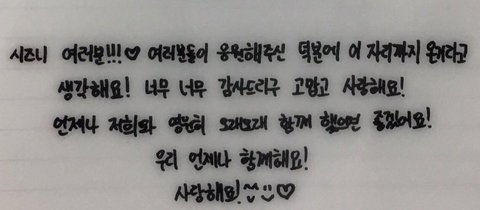 시즈니 여러분!!!♡ 여러분들이 응원해주신 덕분에 이 자리까지 온거라고
생각해요! 너무 너무 감사드리구 고맙고 사랑해요!
언제나 저희와 영원히 오래오래 함께 했으면 좋겠어요!
우리 언제나 함께해요!
사랑해요!^^:)♡